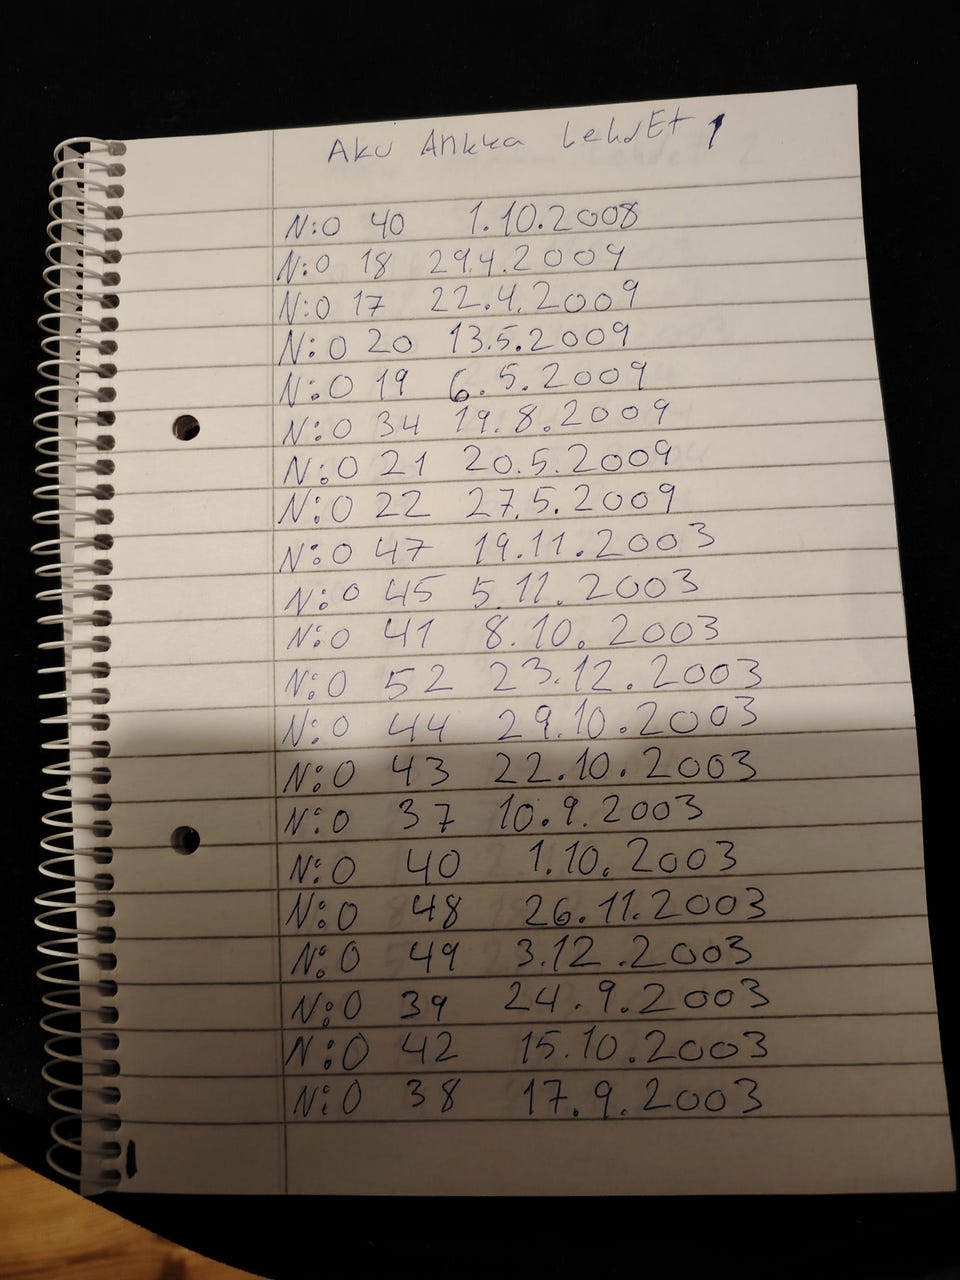 Aku Ankka LehdEt 1
N:O 40 1.10.2008
N:O 18 29.4.2009
N:O 17 22.4.2009
N:O 20 13.5.2009
N:O 19 6.5.2009
N:O 34 19.8.2009
N:O 21 20.5.2009
N:O 22 27.5.2009
N:O 47 19.11.2003
N:O 45 5.11.2003
N:O 41 8.10.2003
N:O 52 23.12.2003
N:O 44 29.10.2003
N:O 43 22.10.2003
N:O 37 10.9.2003
N:O 40 1.10.2003
N:O 48 26.11.2003
N:O 49 3.12.2003
N:O 39 24.9.2003
N:O 42 15.10.2003
N:O 38 17.9.2003